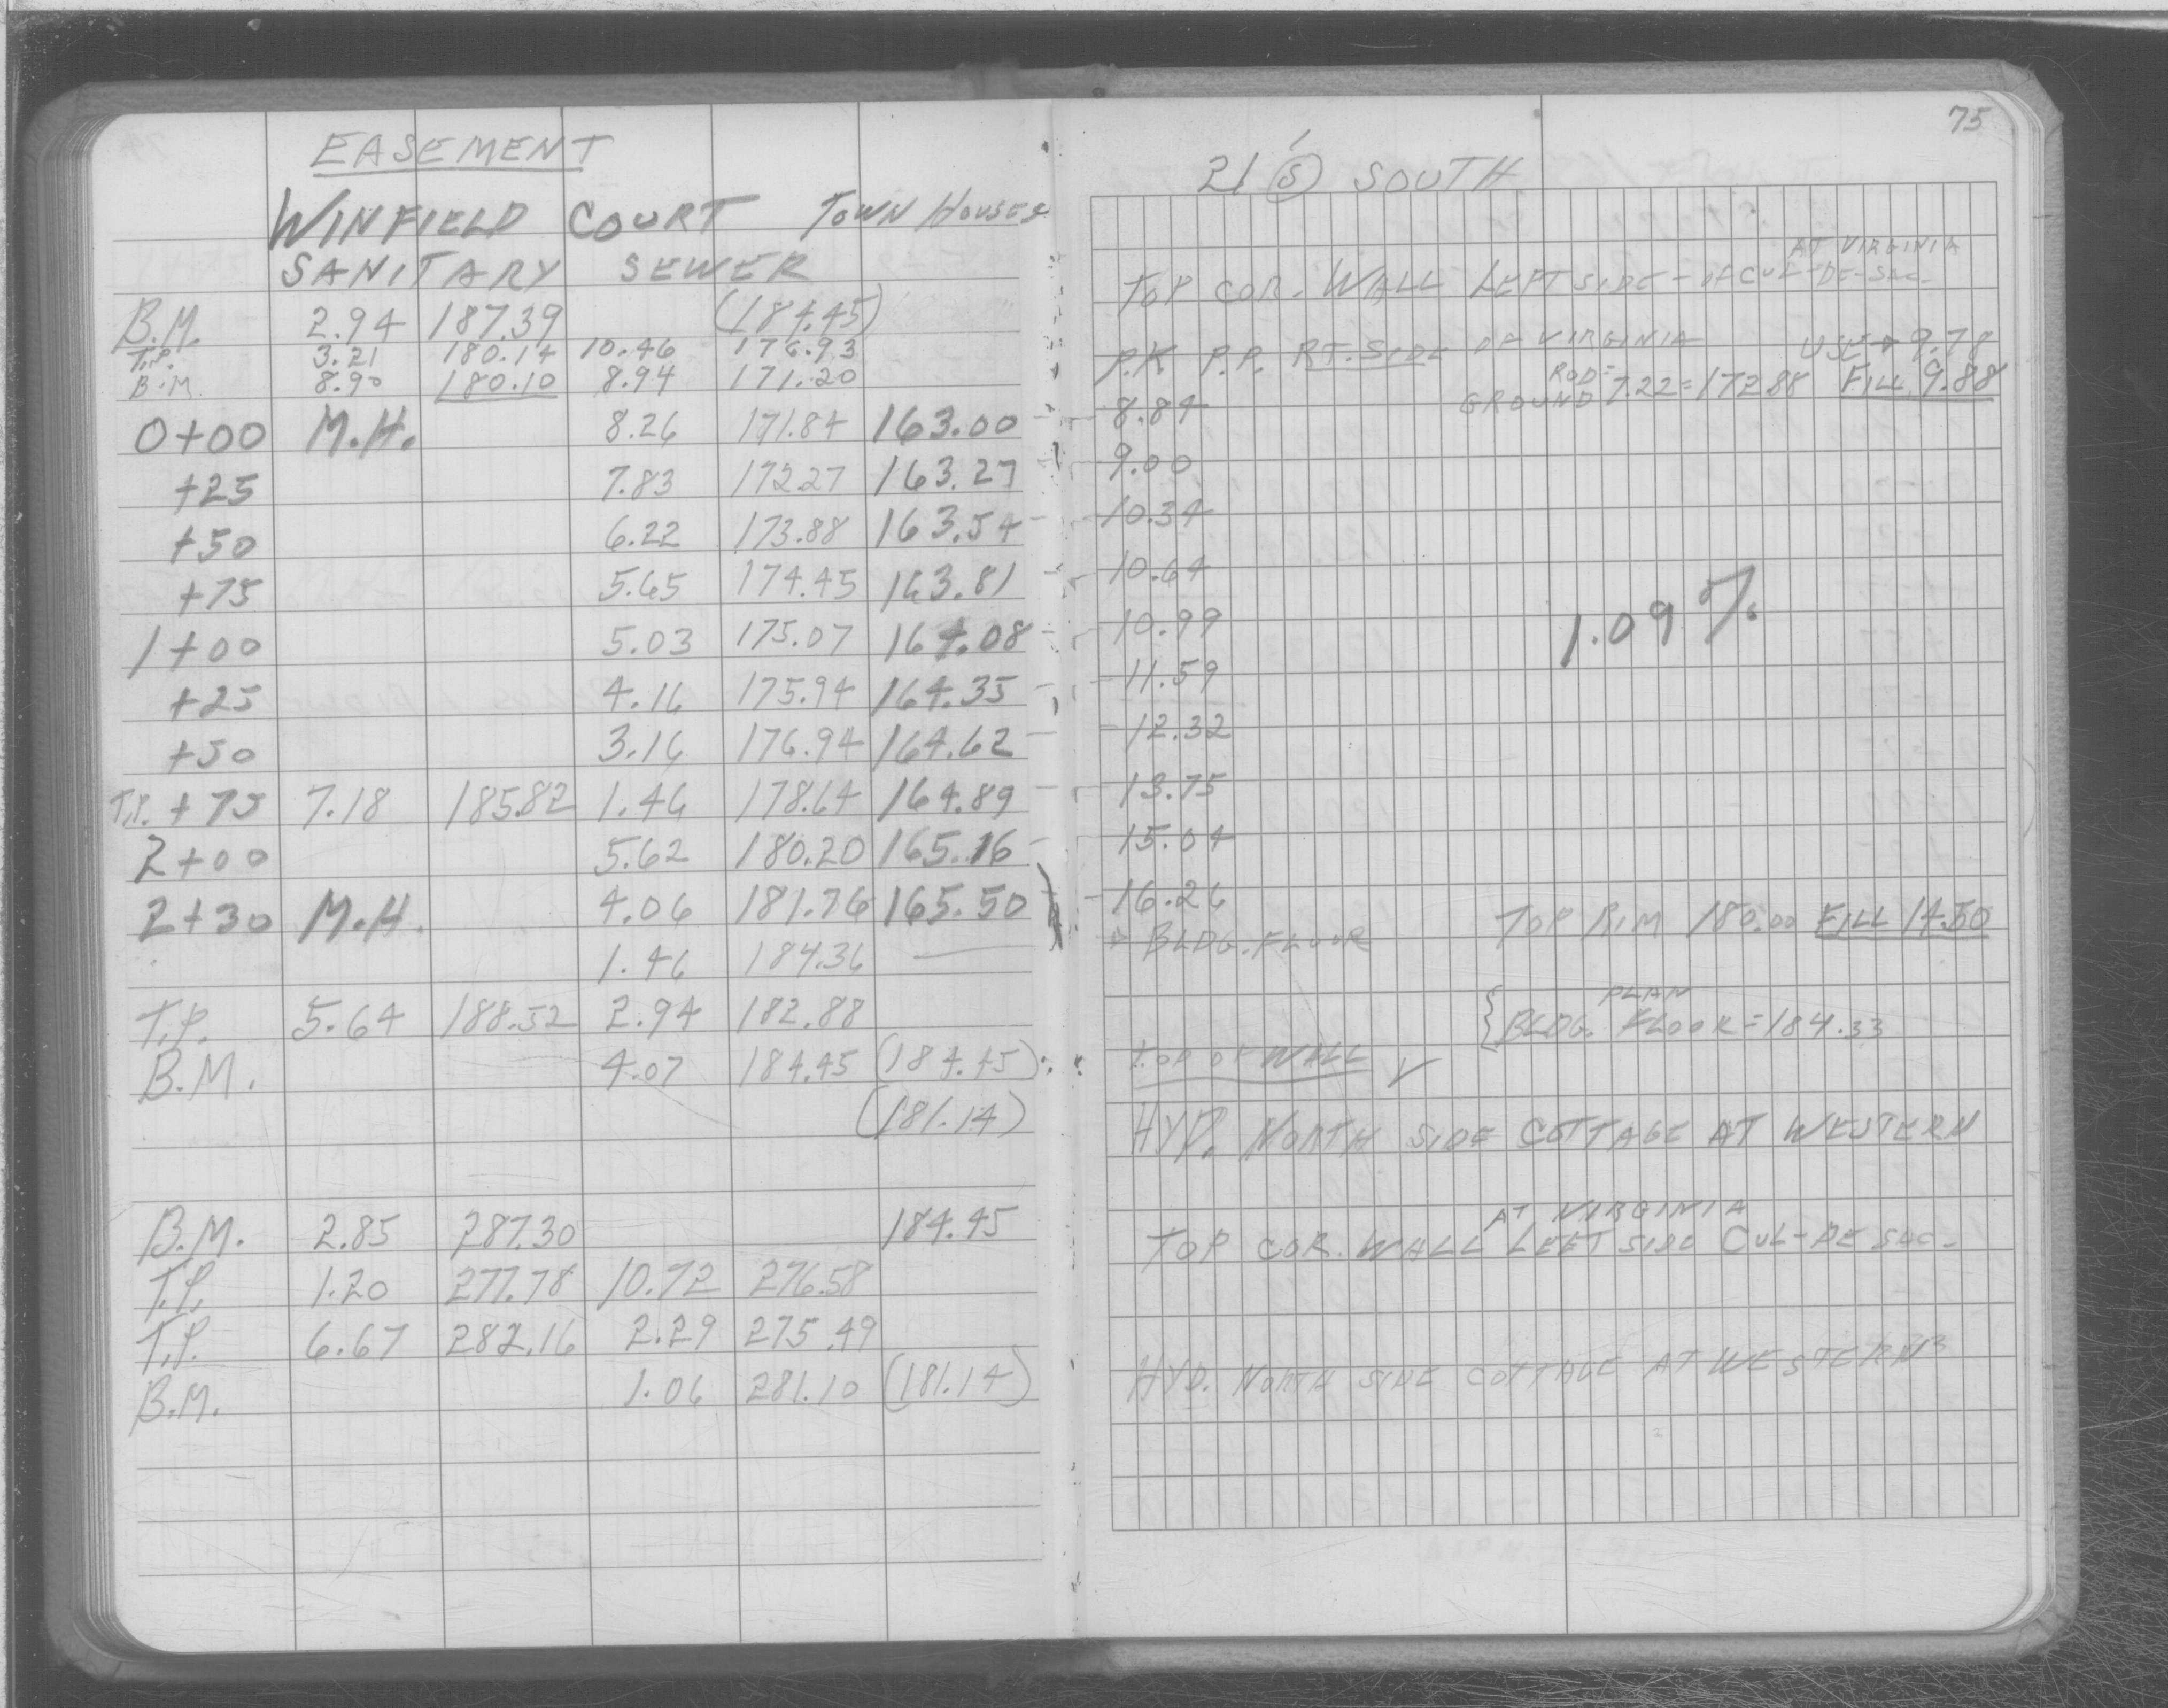 EASEMENT
WINFIELD COURT TOWN HOUSES
SANITARY SEWER
B.M. 2.94 187.39 (184.45)
T.P. 3.21 180.14 10.46 176.93
B.M. 8.90 180.10 8.94 171.20
0+00 M.H. 8.26 171.84 163.00
+25 7.83 172.27 163.27
+50 6.22 173.88 163.54
+75 5.65 174.45 163.81
1+00 5.03 175.07 164.08
+25 4.16 175.94 164.35
+50 3.16 176.94 164.62
T.P. +75 7.18 185.82 1.46 178.64 164.89
2+00 5.62 180.20 165.16
2+30 M.H. 4.06 181.76 165.50
1.46 184.36 —
T.P. 5.64 188.52 2.94 182.88
B.M. 4.07 184.45 (184.45)
(181.14)
B.M. 2.85 287.30 184.45
T.P. 1.20 277.78 10.72 276.58
T.P. 6.67 282.16 2.29 275.49
B.M. 1.06 281.10 (181.14)
75
21 (S) SOUTH
AT VIRGINIA
TOP COR. WALL LEFT SIDE - OF CUL-DE-SAC-
P.K P.P. RT. SIDE OF VIRGINIA USE → 9.78
ROD=
GROUND 7.22=172.88 FILL 9.88
8.84
9.00
10.34
10.64
10.99
1.09 %
11.59
12.32
13.75
15.04
16.26
TOP RIM 180.00 FILL 14.50
→ BLDG. FLOOR
PLAN
{BLDG. FLOOR = 184.33
TOP OF WALL ✓
HYD. NORTH SIDE COTTAGE AT WESTERN
AT VIRGINIA
TOP COR. WALL LEFT SIDE CUL-DE SAC-
HYD. NORTH SIDE COTTAGE AT WESTERN